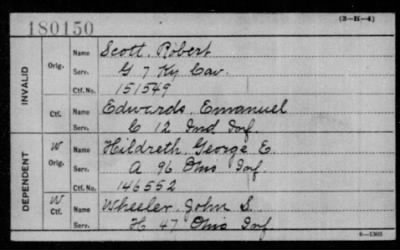 180150
(3-H-4)
INVALID
Orig.
Name Scott, Robert
Serv. G 7 Ky Cav.
Ctf. No. 151549
Ctf.
Name Edwards, Emanuel
Serv. C 12 Ind Inf.
DEPENDENT
W
Orig.
Name Hildreth, George E.
Serv. A 96 Ohio Inf.
Ctf. No. 146552
W
Ctf.
Name Wheeler, John S.
Serv. H 47 Ohio Inf